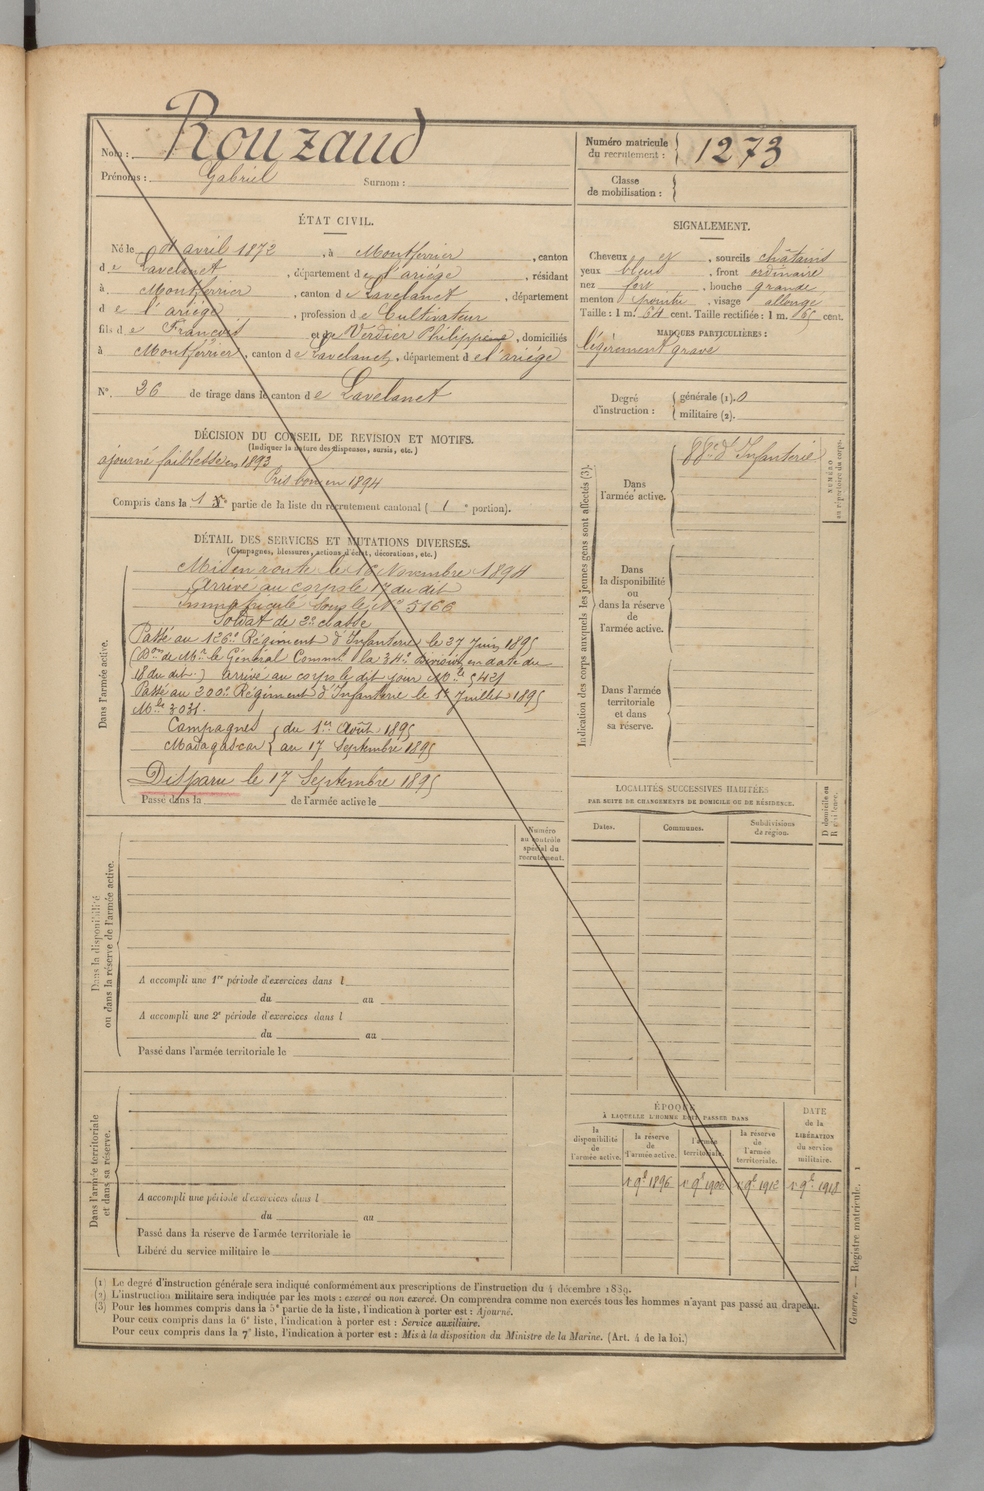 Nom : Rouzaud
Prénoms : Gabriel Surnom :
Numéro matricule du recrutement : 1273
Classe de mobilisation :
ÉTAT CIVIL.
Né le avril 1872, à Montferrier, canton
de Lavelanet, département de l'ariége, résidant
à Montferrier, canton de Lavelanet, département
de l'ariége, profession de Cultivateur
fils de François et de Verdier Philippine, domiciliés
à Montferrier, canton de Lavelanet, département de l'ariége
N° 26 de tirage dans le canton de Lavelanet
SIGNALEMENT.
Cheveux et, sourcils châtains
yeux bleus, front ordinaire
nez fort, bouche grande
menton pointu, visage allongé
Taille : 1 m. 64 cent. Taille rectifiée : 1 m. 65 cent.
MARQUES PARTICULIÈRES :
légèrement gravé
Degré d'instruction : générale (1). 0
militaire (2).
DÉCISION DU CONSEIL DE REVISION ET MOTIFS.
(Indiquer la nature des dispenses, sursis, etc.)
ajourné faiblesse en 1893
Pris bon en 1894
Compris dans la 1 partie de la liste du recrutement cantonal ( 1 portion).
DÉTAIL DES SERVICES ET MUTATIONS DIVERSES.
(Campagnes, blessures, actions d'éclat, décorations, etc.)
Dans l'armée active.
Mis en route le 16 Novembre 1894
Arrivé au corps le 17 du dit
Immatriculé sous le N° 5166
Soldat de 2e classe
Passé au 126e Régiment d'Infanterie le 27 Juin 1895
(Don de Mr le Général Commt la 34e Division en date du
18 du dit.) arrivé au corps le dit jour Mle 5421
Passé au 200e Régiment d'Infanterie le 1er Juillet 1895
Mle 3031.
Campagnes du 1er Août 1895
Madagascar au 17 Septembre 1895
Disparu le 17 Septembre 1895
Passé dans la de l'armée active le
Indication des corps auxquels les jeunes gens sont affectés (3).
NUMÉRO au répertoire du corps.
Dans l'armée active. 88e d'Infanterie
Dans la disponibilité ou dans la réserve de l'armée active.
Dans l'armée territoriale et dans sa réserve.
LOCALITÉS SUCCESSIVES HABITÉES
PAR SUITE DE CHANGEMENTS DE DOMICILE OU DE RÉSIDENCE.
Dates. Communes. Subdivisions de région. D domicile ou R résidence.
Dans la disponibilité ou dans la réserve de l'armée active.
Numéro au contrôle spécial du recrutement.
A accompli une 1re période d'exercices dans l
du au
A accompli une 2e période d'exercices dans l
du au
Passé dans l'armée territoriale le
Dans l'armée territoriale et dans sa réserve.
A accompli une période d'exercices dans l
du au
Passé dans la réserve de l'armée territoriale le
Libéré du service militaire le
ÉPOQUE
À LAQUELLE L'HOMME DOIT PASSER DANS
la disponibilité de l'armée active.
la réserve de l'armée active.
l'armée territoriale.
la réserve de l'armée territoriale.
DATE de la LIBÉRATION du service militaire.
1896 1906 1912 1918
(1) Le degré d'instruction générale sera indiqué conformément aux prescriptions de l'instruction du 4 décembre 1889.
(2) L'instruction militaire sera indiquée par les mots : exercé ou non exercé. On comprendra comme non exercés tous les hommes n'ayant pas passé au drapeau.
(3) Pour les hommes compris dans la 5e partie de la liste, l'indication à porter est : Ajourné.
Pour ceux compris dans la 6e liste, l'indication à porter est : Service auxiliaire.
Pour ceux compris dans la 7e liste, l'indication à porter est : Mis à la disposition du Ministre de la Marine. (Art. 4 de la loi.)
Guerre. — Registre matricule. 1